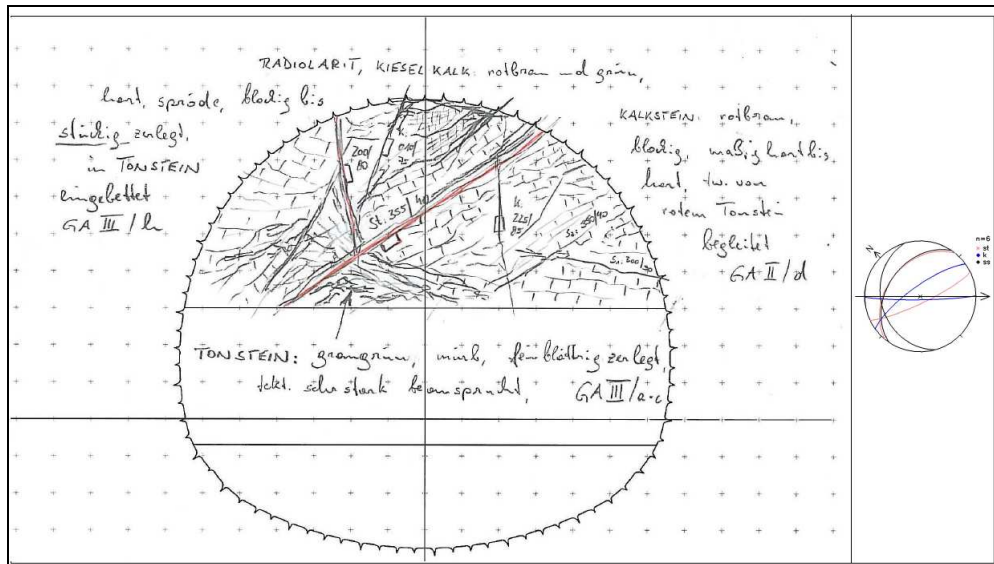 RADIOLARIT, KIESELKALK: rotbraun und grün,
hart, spröde, blockig bis
stückig zerlegt,
in TONSTEIN
eingebettet
GA III / h
KALKSTEIN: rotbraun,
blockig, mäßig hart bis
hart, tw. von
rotem Tonstein
begleitet
GA II/d
200/
80
k.
010/
75
St. 355/40
k.
225/
85
ss. 350/40
ss. 300/30
TONSTEIN: graugrün, mürb, feinblättrig zerlegt,
tekt. sehr stark beansprucht, GA III/a-c
N
n=6
st
k
ss